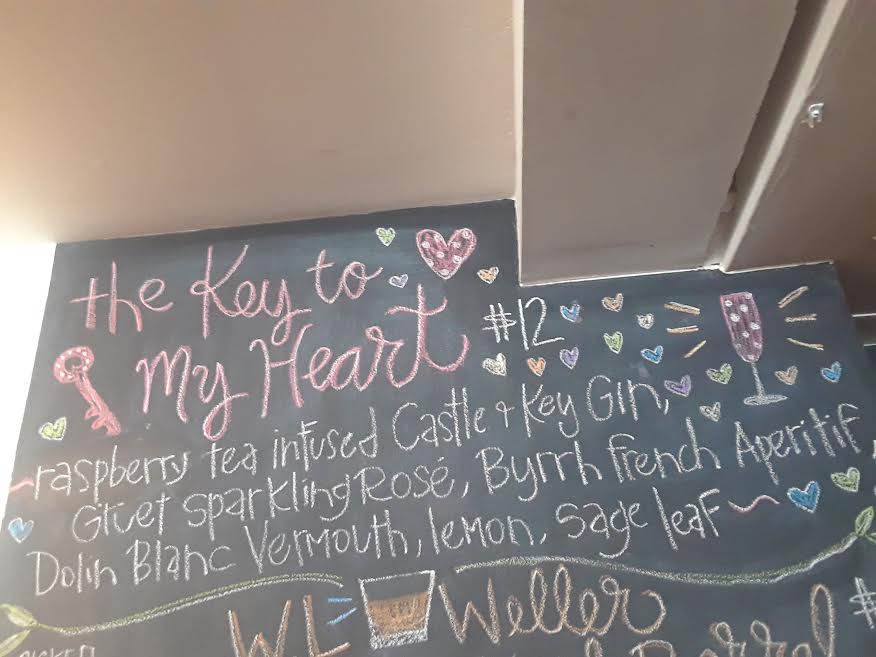 the Key to
My Heart #12
raspberry tea infused Castle & Key Gin,
Gruet sparkling Rosé, Byrrh french Aperitif,
Dolin Blanc Vermouth, lemon, sage leaf
WL Weller